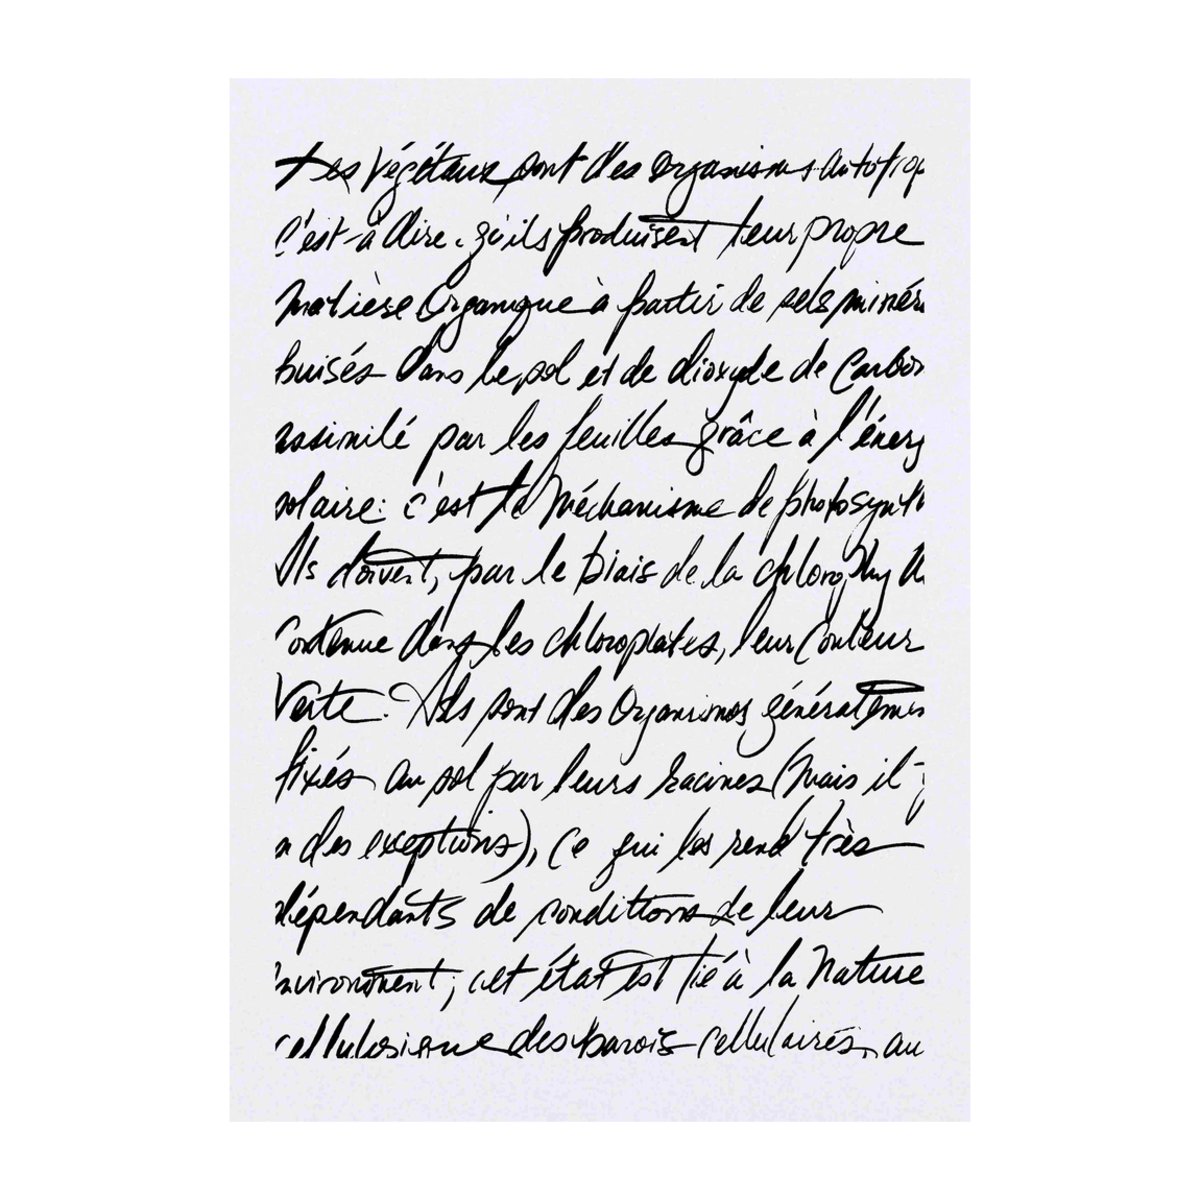 Les végétaux sont des organismes autotrop
c'est-à dire. qu'ils produisent leur propre
matière organique à partir de sels minér
puisés dans le sol et de dioxyde de carbon
assimilé par les feuilles grâce à l'énerg
solaire: c'est le méchanisme de photosynth
Ils doivent, par le biais de la chlorophyll
contenue dans les chloroplastes, leur couleur
verte. Ils sont des organismes généralemen
fixés au sol par leurs racines (mais il-y
a des exceptions), ce qui les rend très
dépendants de conditions de leur
environnement; cet état est lié à la nature
cellulosique des parois cellulaires, au